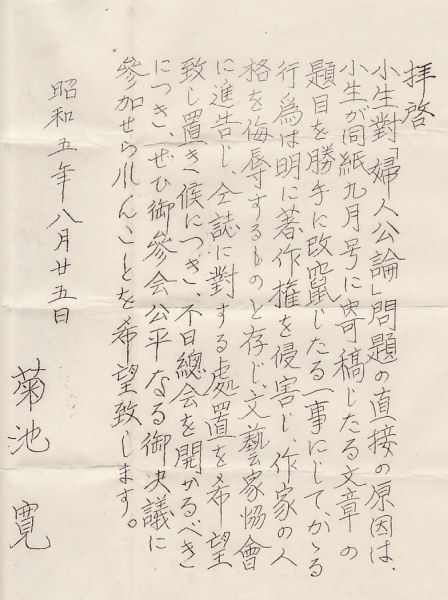 拝啓
小生對「婦人公論」問題の直接の原因は、
小生が同紙九月号に寄稿したる文章の
題目を勝手に改竄したる一事にして、かゝる
行爲は明に著作権を侵害し、作家の人
格を侮辱するものと存じ、文藝家協會
に進告し、仝誌に對する處置を希望
致し置き候につき、不日總会を開かるべき
につき、ぜひ御參会公平なる御決議に
參加せられんことを希望致します。
昭和五年八月廿五日
菊池 寛